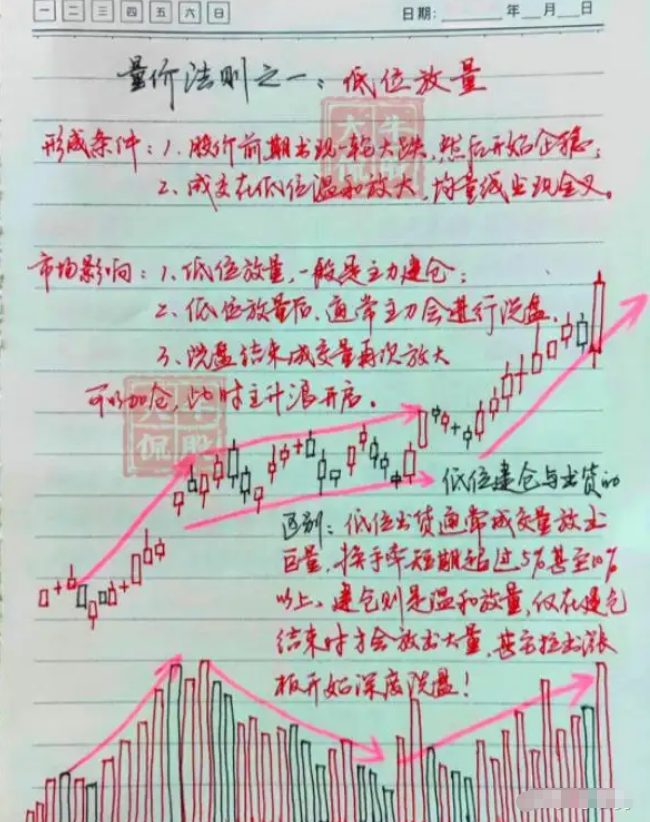 一 二 三 四 五 六 日 日期: 年 月 日
量价法则之一: 低位放量
形成条件: 1. 股价前期出现一轮大跌, 然后开始企稳;
2. 成交在低位温和放大, 均量线出现金叉。
市场影响: 1. 低位放量, 一般是主力建仓;
2. 低位放量后, 通常主力会进行洗盘.
3. 洗盘结束成交量再次放大
可以加仓, 此时主升浪开启。
低位建仓与出货的
区别: 低位出货通常成交量放出
巨量, 换手率短期超过5%甚至10%
以上。建仓则是温和放量, 仅在建仓
结束时才会放出大量, 甚至拉出涨
板开始深度洗盘!
大牛
侃股
大牛
侃股